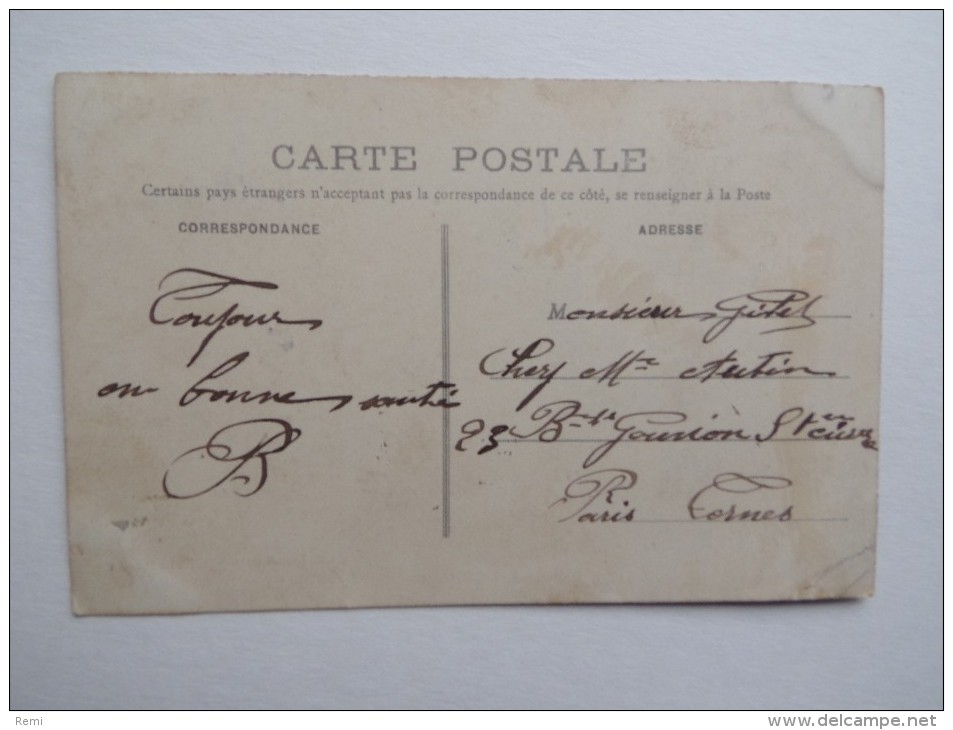 CARTE POSTALE
Certains pays étrangers n'acceptant pas la correspondance de ce côté, se renseigner à la Poste
CORRESPONDANCE
Toujours
en bonne santé
B
ADRESSE
Monsieur
Chez Mr
23 Bd Gouvion St
Paris Ternes
Remi
www.delcampe.net